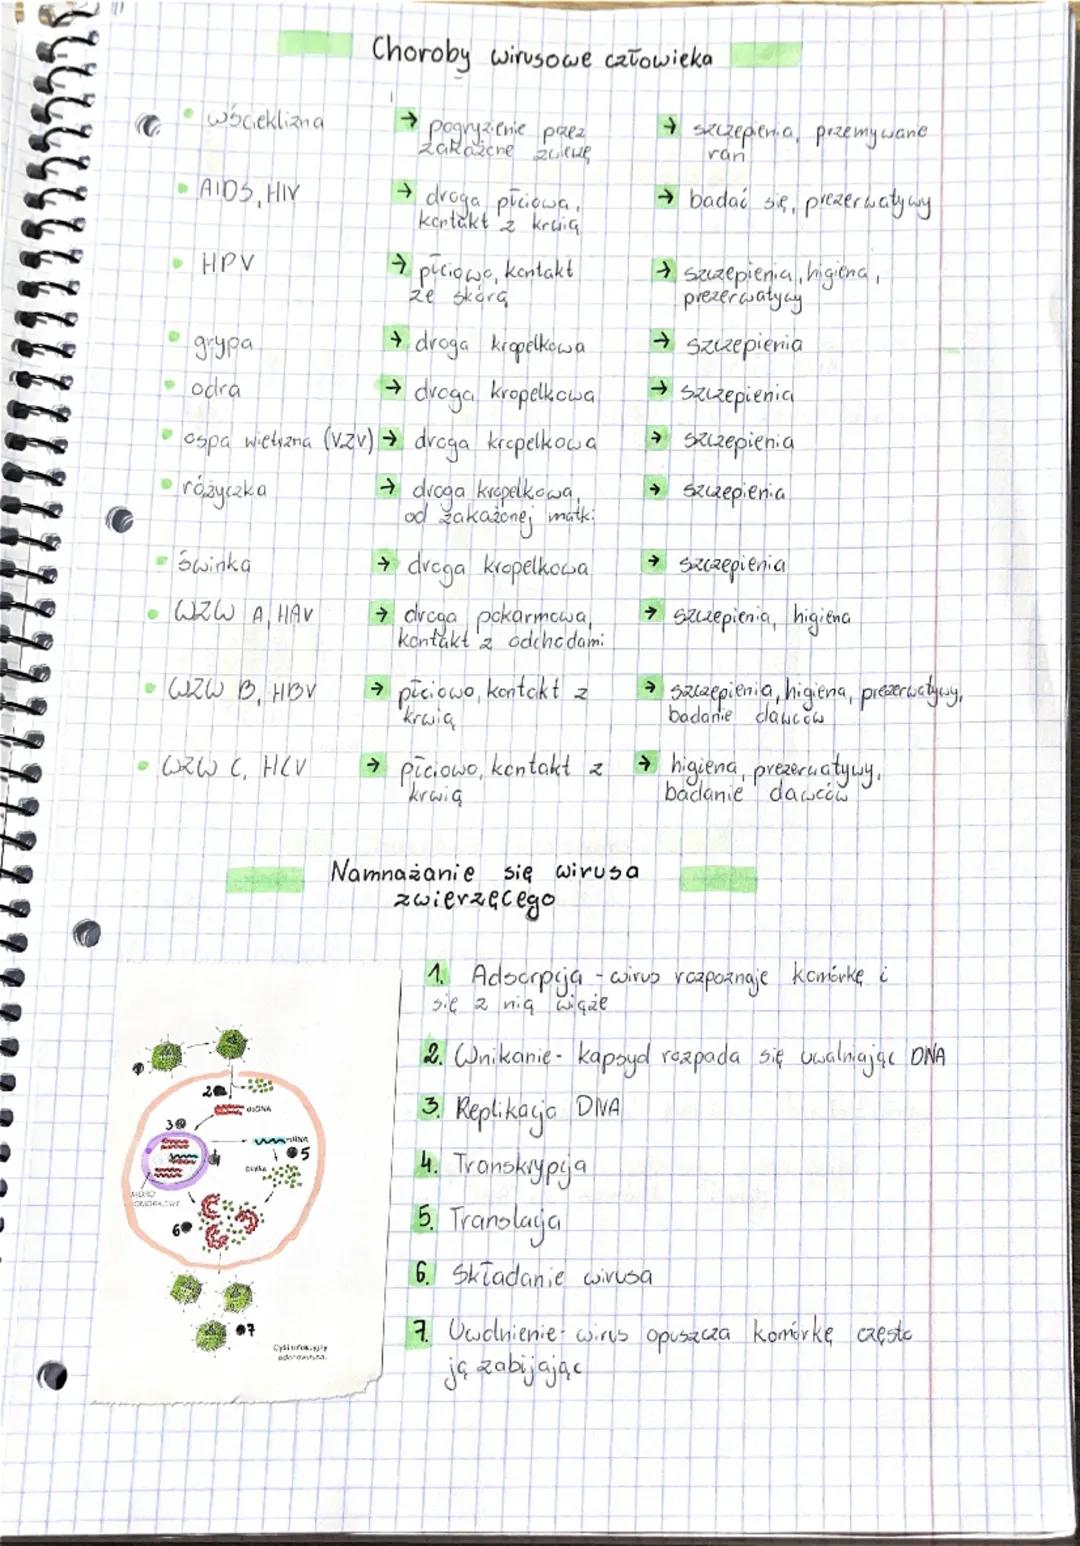 Choroby wirusowe człowieka
• wścieklizna → pogryzienie przez → szczepienia, przemywane
zakażone zwierzę ran
• AIDS, HIV → droga płciowa, → badać się, prezerwatywy
kontakt z krwią
• HPV → płciowo, kontakt → szczepienia, higiena,
ze skórą prezerwatywy
• grypa → droga kropelkowa → szczepienia
• odra → droga kropelkowa → szczepienia
• ospa wietrzna (VZV) → droga kropelkowa → szczepienia
• różyczka → droga kropelkowa, → szczepienia
od zakażonej matki
• świnka → droga kropelkowa → szczepienia
• WZW A, HAV → droga pokarmowa, → szczepienia, higiena
kontakt z odchodami
• WZW B, HBV → płciowo, kontakt z → szczepienia, higiena, prezerwatywy,
krwią badanie dawców
• WZW C, HCV → płciowo, kontakt z → higiena, prezerwatywy,
krwią badanie dawców
Namnażanie się wirusa
zwierzęcego
1. Adsorpcja - wirus rozpoznaje komórkę i
się z nią wiąże
2. Wnikanie - kapsyd rozpada się uwalniając DNA
3. Replikacja DNA
4. Transkrypcja
5. Translacja
6. Składanie wirusa
7. Uwolnienie - wirus opuszcza komórkę często
ją zabijając
2
dsDNA
3
mRNA
5
6
7